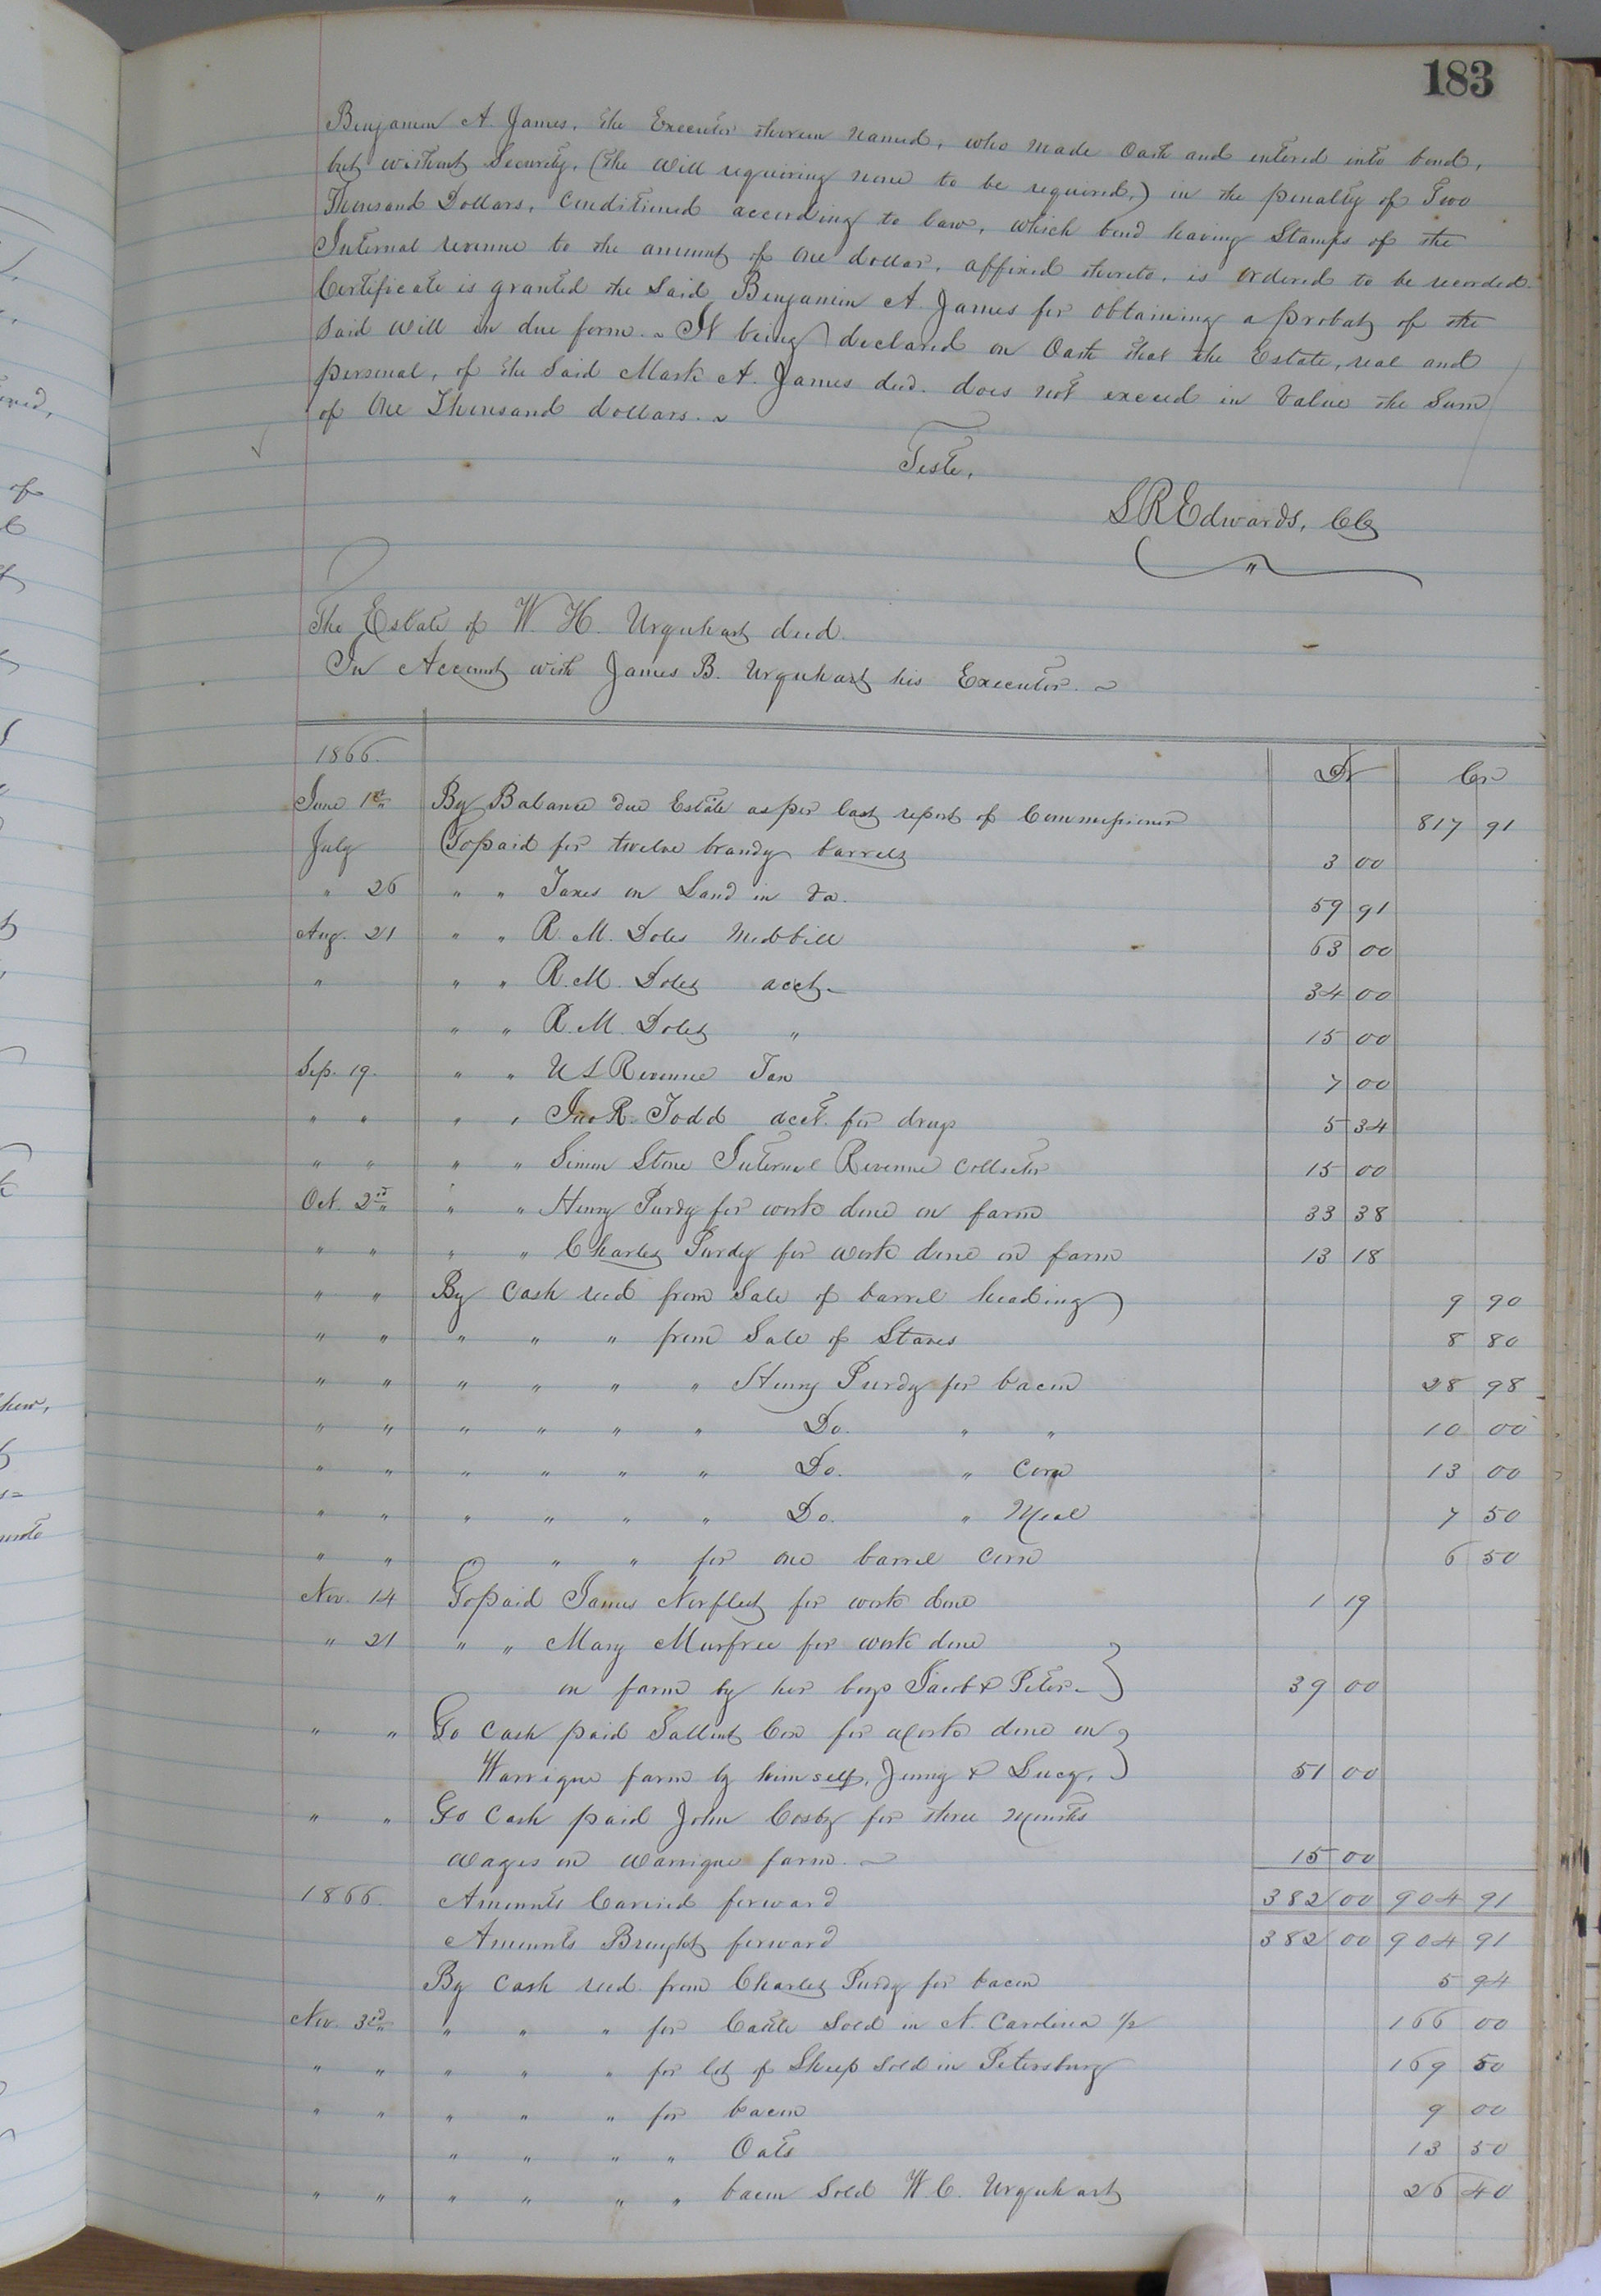 183
Benjamin A. James, the Executor therein named, who made Oath and entered into bond,
but without Security, (the Will requiring none to be required,) in the penalty of Two
Thousand Dollars, Conditioned according to law, which bond having Stamps of the
Internal revenue to the amount of One dollar, affixed thereto, is Ordered to be recorded.
Certificate is granted the Said Benjamin A. James for Obtaining a probat of the
Said Will in due form. ~ It being declared on Oath that the Estate, real and
personal, of the Said Mark A. James decd. does not exceed in Value the Sum
of One Thousand dollars. ~
Teste,
S R Edwards, CC
The Estate of W. H. Urquhart decd.
In Account with James B. Urquhart his Executor. ~
1866. Dr Cr
June 1st By Balance due Estate as per last report of Commissioner 817 91
July To paid for twelve brandy barrels 3 00
" 26 " " Taxes on Land in Va. 59 91
Aug. 21 " " R. M. Doles Med bill 63 00
" " " R. M. Doles acct. 34 00
" " R. M. Doles " 15 00
Sep. 19. " " U S Revenue Tax 7 00
" " " " Jno R. Todd acct. for drugs 5 34
" " " " Simon Stone Internal Revenue Collector 15 00
Oct. 2nd " " Henry Purdy for work done on farm 33 38
" " " " Charles Purdy for work done on farm 13 18
" " By Cash recd from Sale of barrel heading 9 90
" " " " " from Sale of Staves 8 80
" " " " " " Henry Purdy for bacon 28 98
" " " " " " Do. " " 10 00
" " " " " " Do. " Corn 13 00
" " " " " " Do. " Meal 7 50
" " " " " for one barrel Corn 6 50
Nov. 14 To paid James Norfleet for work done 1 19
" 21 " " Mary Murfree for work done
on farm by her boys Jacob & Peter 39 00
" " To Cash paid Cox for work done on
Warrique farm by himself, Jenny & Lucy, 51 00
" " To Cash paid John Cosby for three Months
Wages on Warrique farm. ~ 15 00
1866. Amounts Carried forward 382 00 904 91
Amounts Brought forward 382 00 904 91
By Cash recd. from Charles Purdy for bacon 5 94
Nov. 3rd " " " for Cattle Sold in N. Carolina 1/2 166 00
" " " " " for lot of Sheep Sold in Petersburg 169 50
" " " " " for bacon 9 00
" " " " Oats 13 50
" " " " " " bacon Sold W. C. Urquhart 26 40